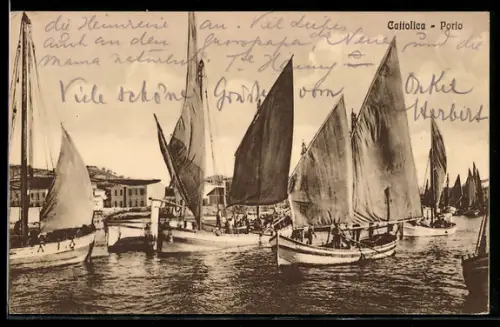 Cattolica - Porto
die Heimreise an. Viel Liebes
auch an den Grosspapa Neues und die
Mama natürlich Tte Henny
Viele schöne Grüße vom Onkel
Herbert